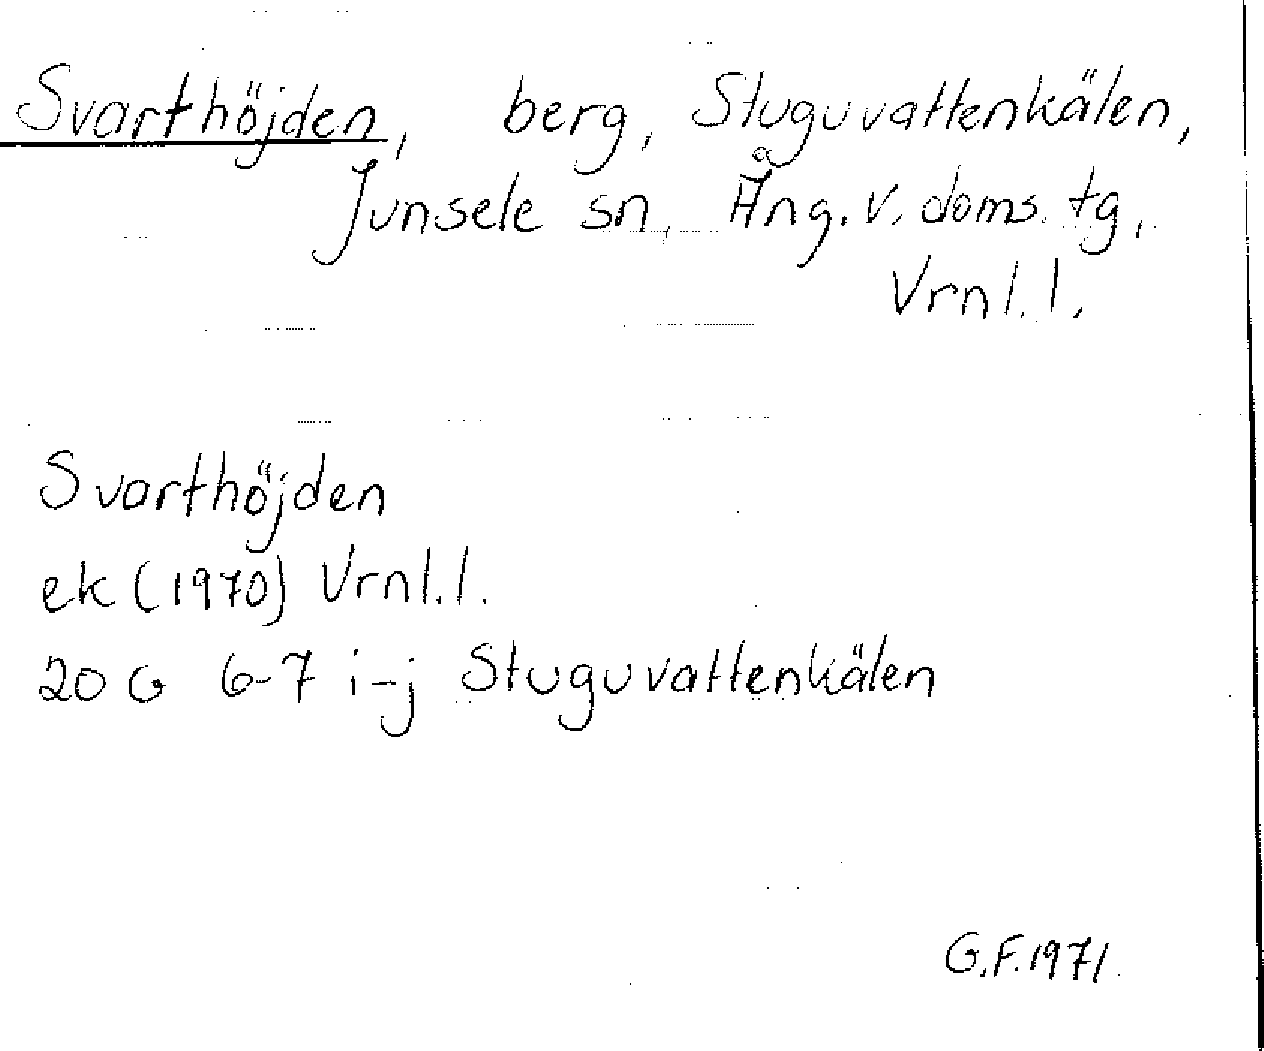 Svarthöjden, berg, Stuguvattenkälen,
Junsele sn, Ång. v. doms. tg,
Vrnl. l.
Svarthöjden
ek (1970) Vrnl. l.
20 G 6-7 i-j Stuguvattenkälen
G.F. 1971.